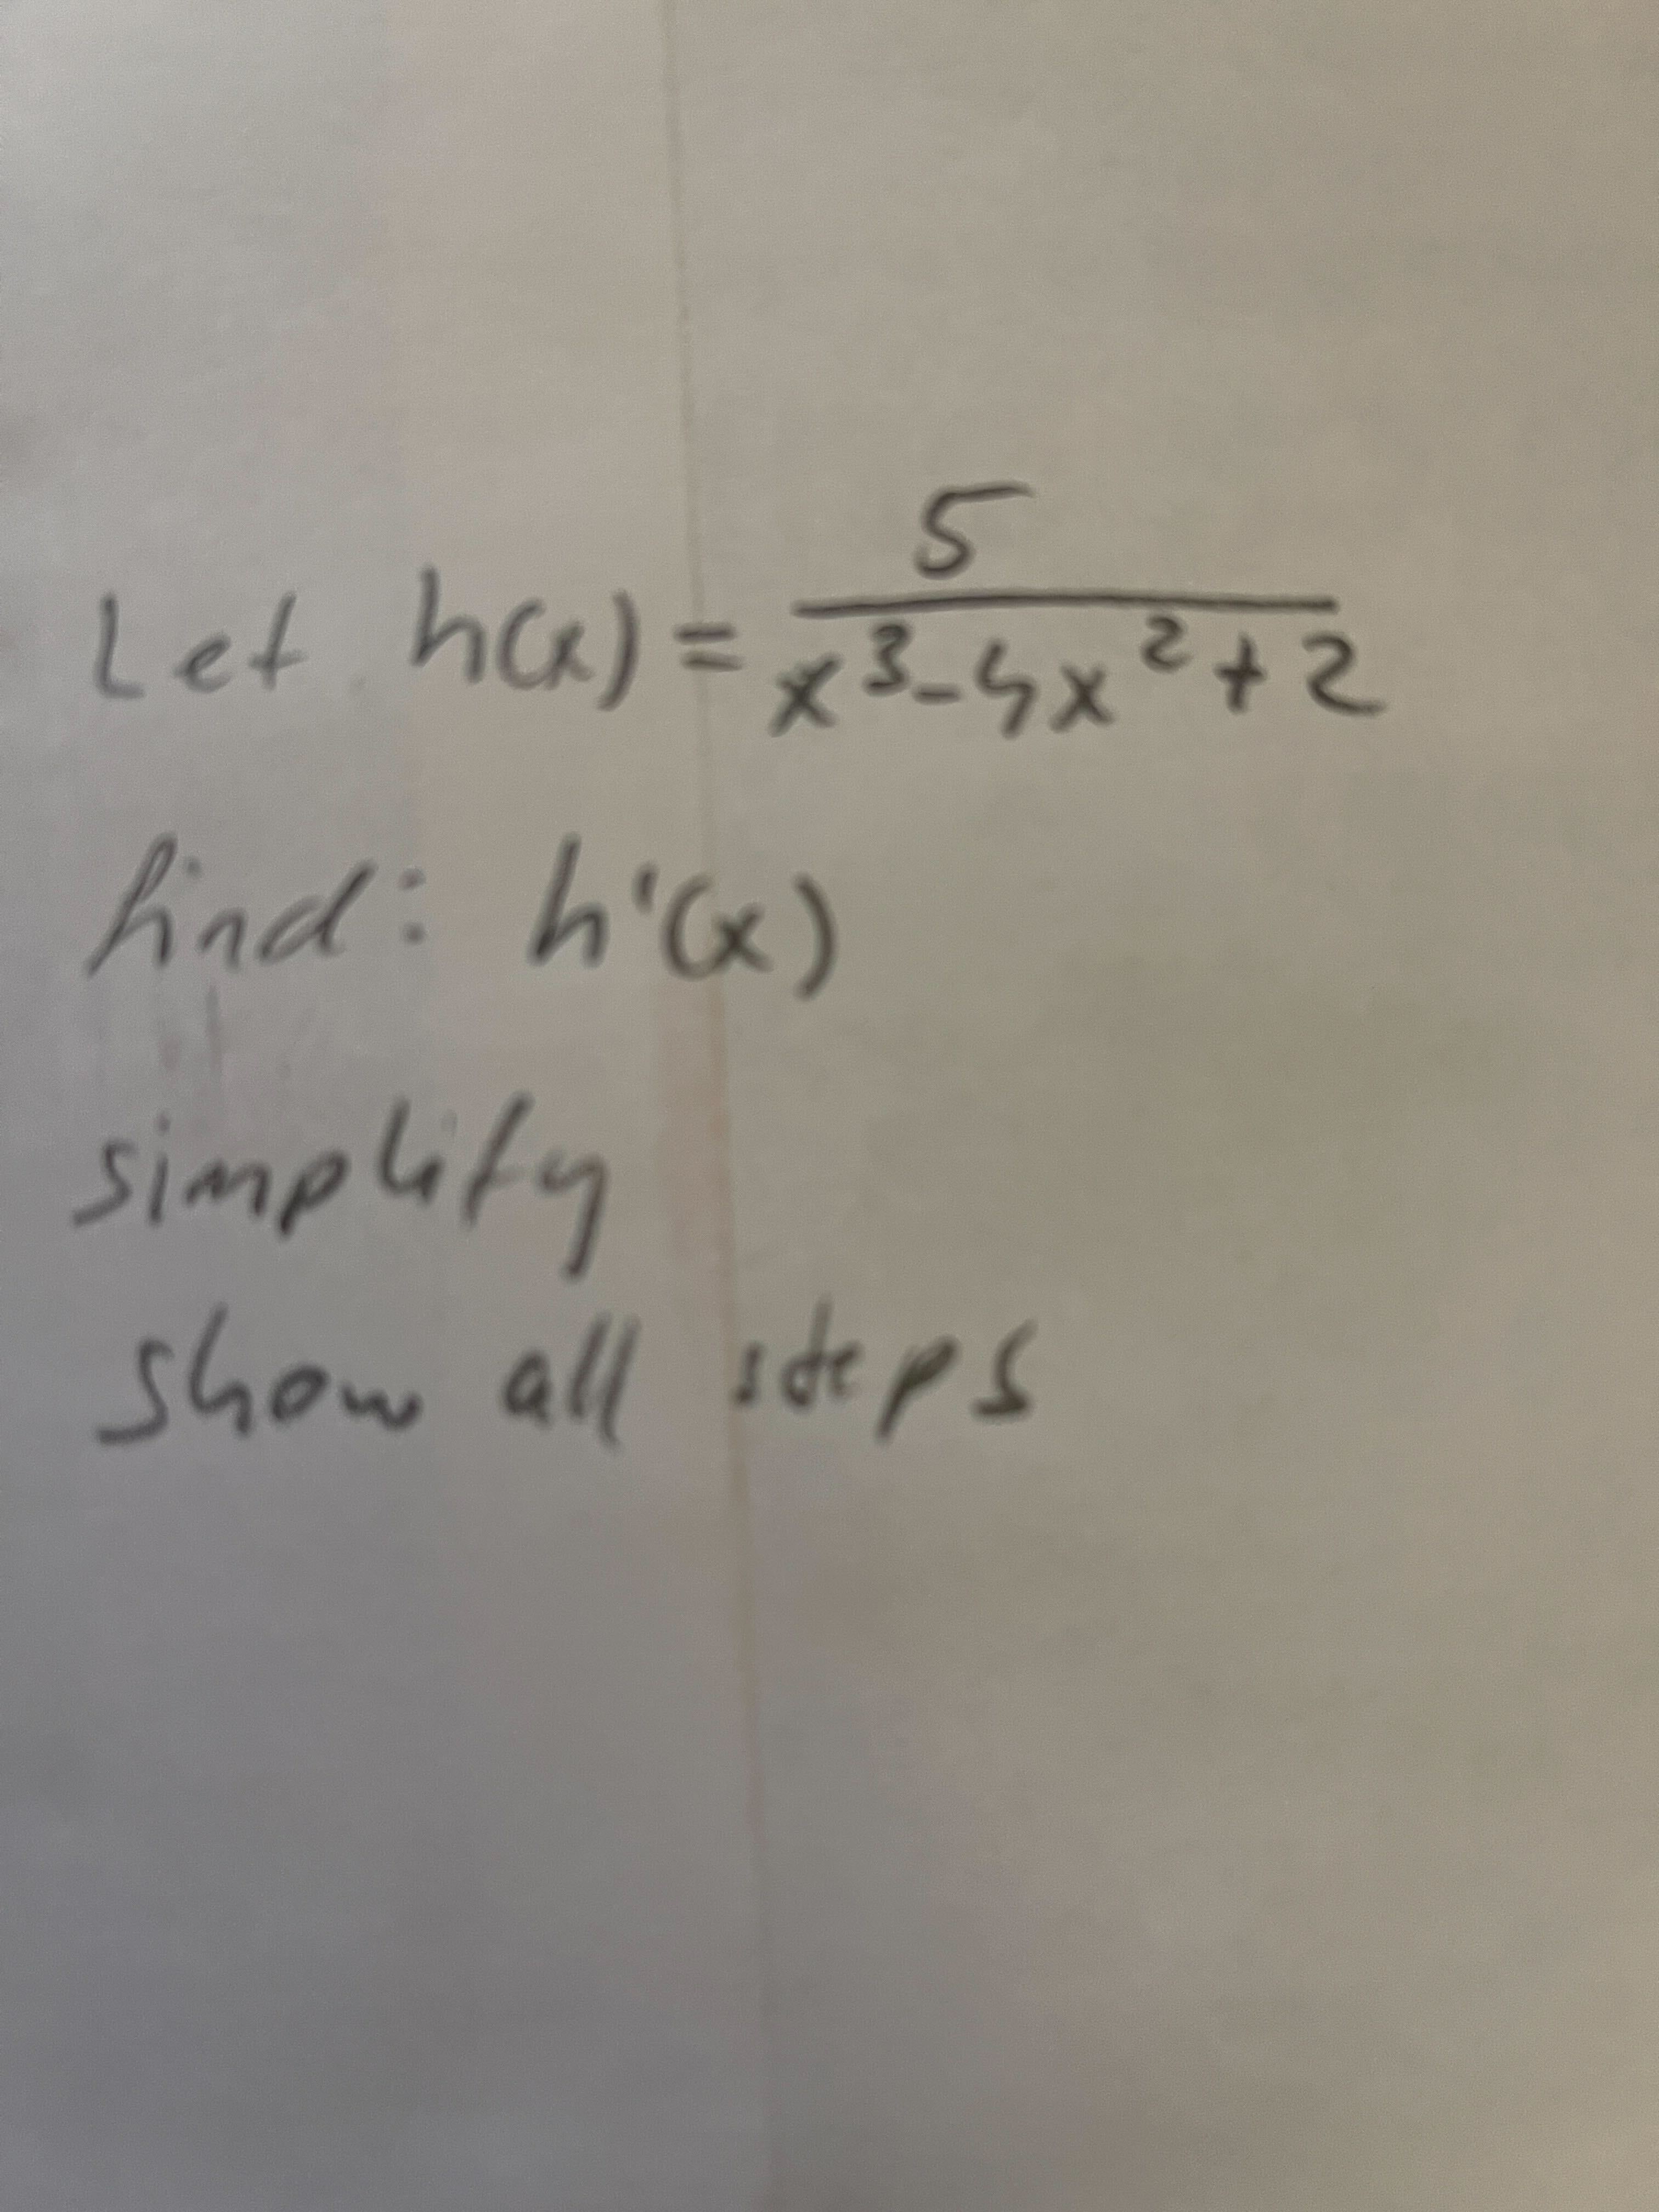 Let h(x) = 5/(x³-4x²+2)
find: h'(x)
simplify
show all steps